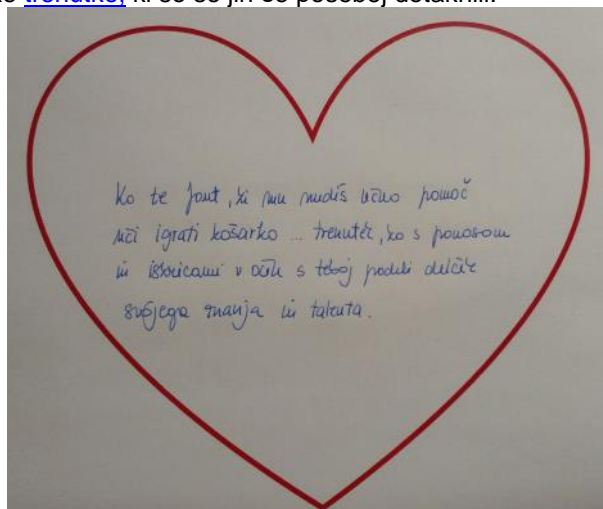 trenutke, ki so se jih še posebej dotaknili.
Ko te fant, ki mu nudiš učno pomoč
uči igrati košarko ... trenutek, ko s ponosom
in iskricami v očeh s teboj podeli delčke
svojega znanja in talenta.